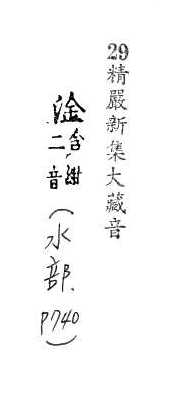 29精嚴新集大藏音
淦含紺二音(水部.P740)